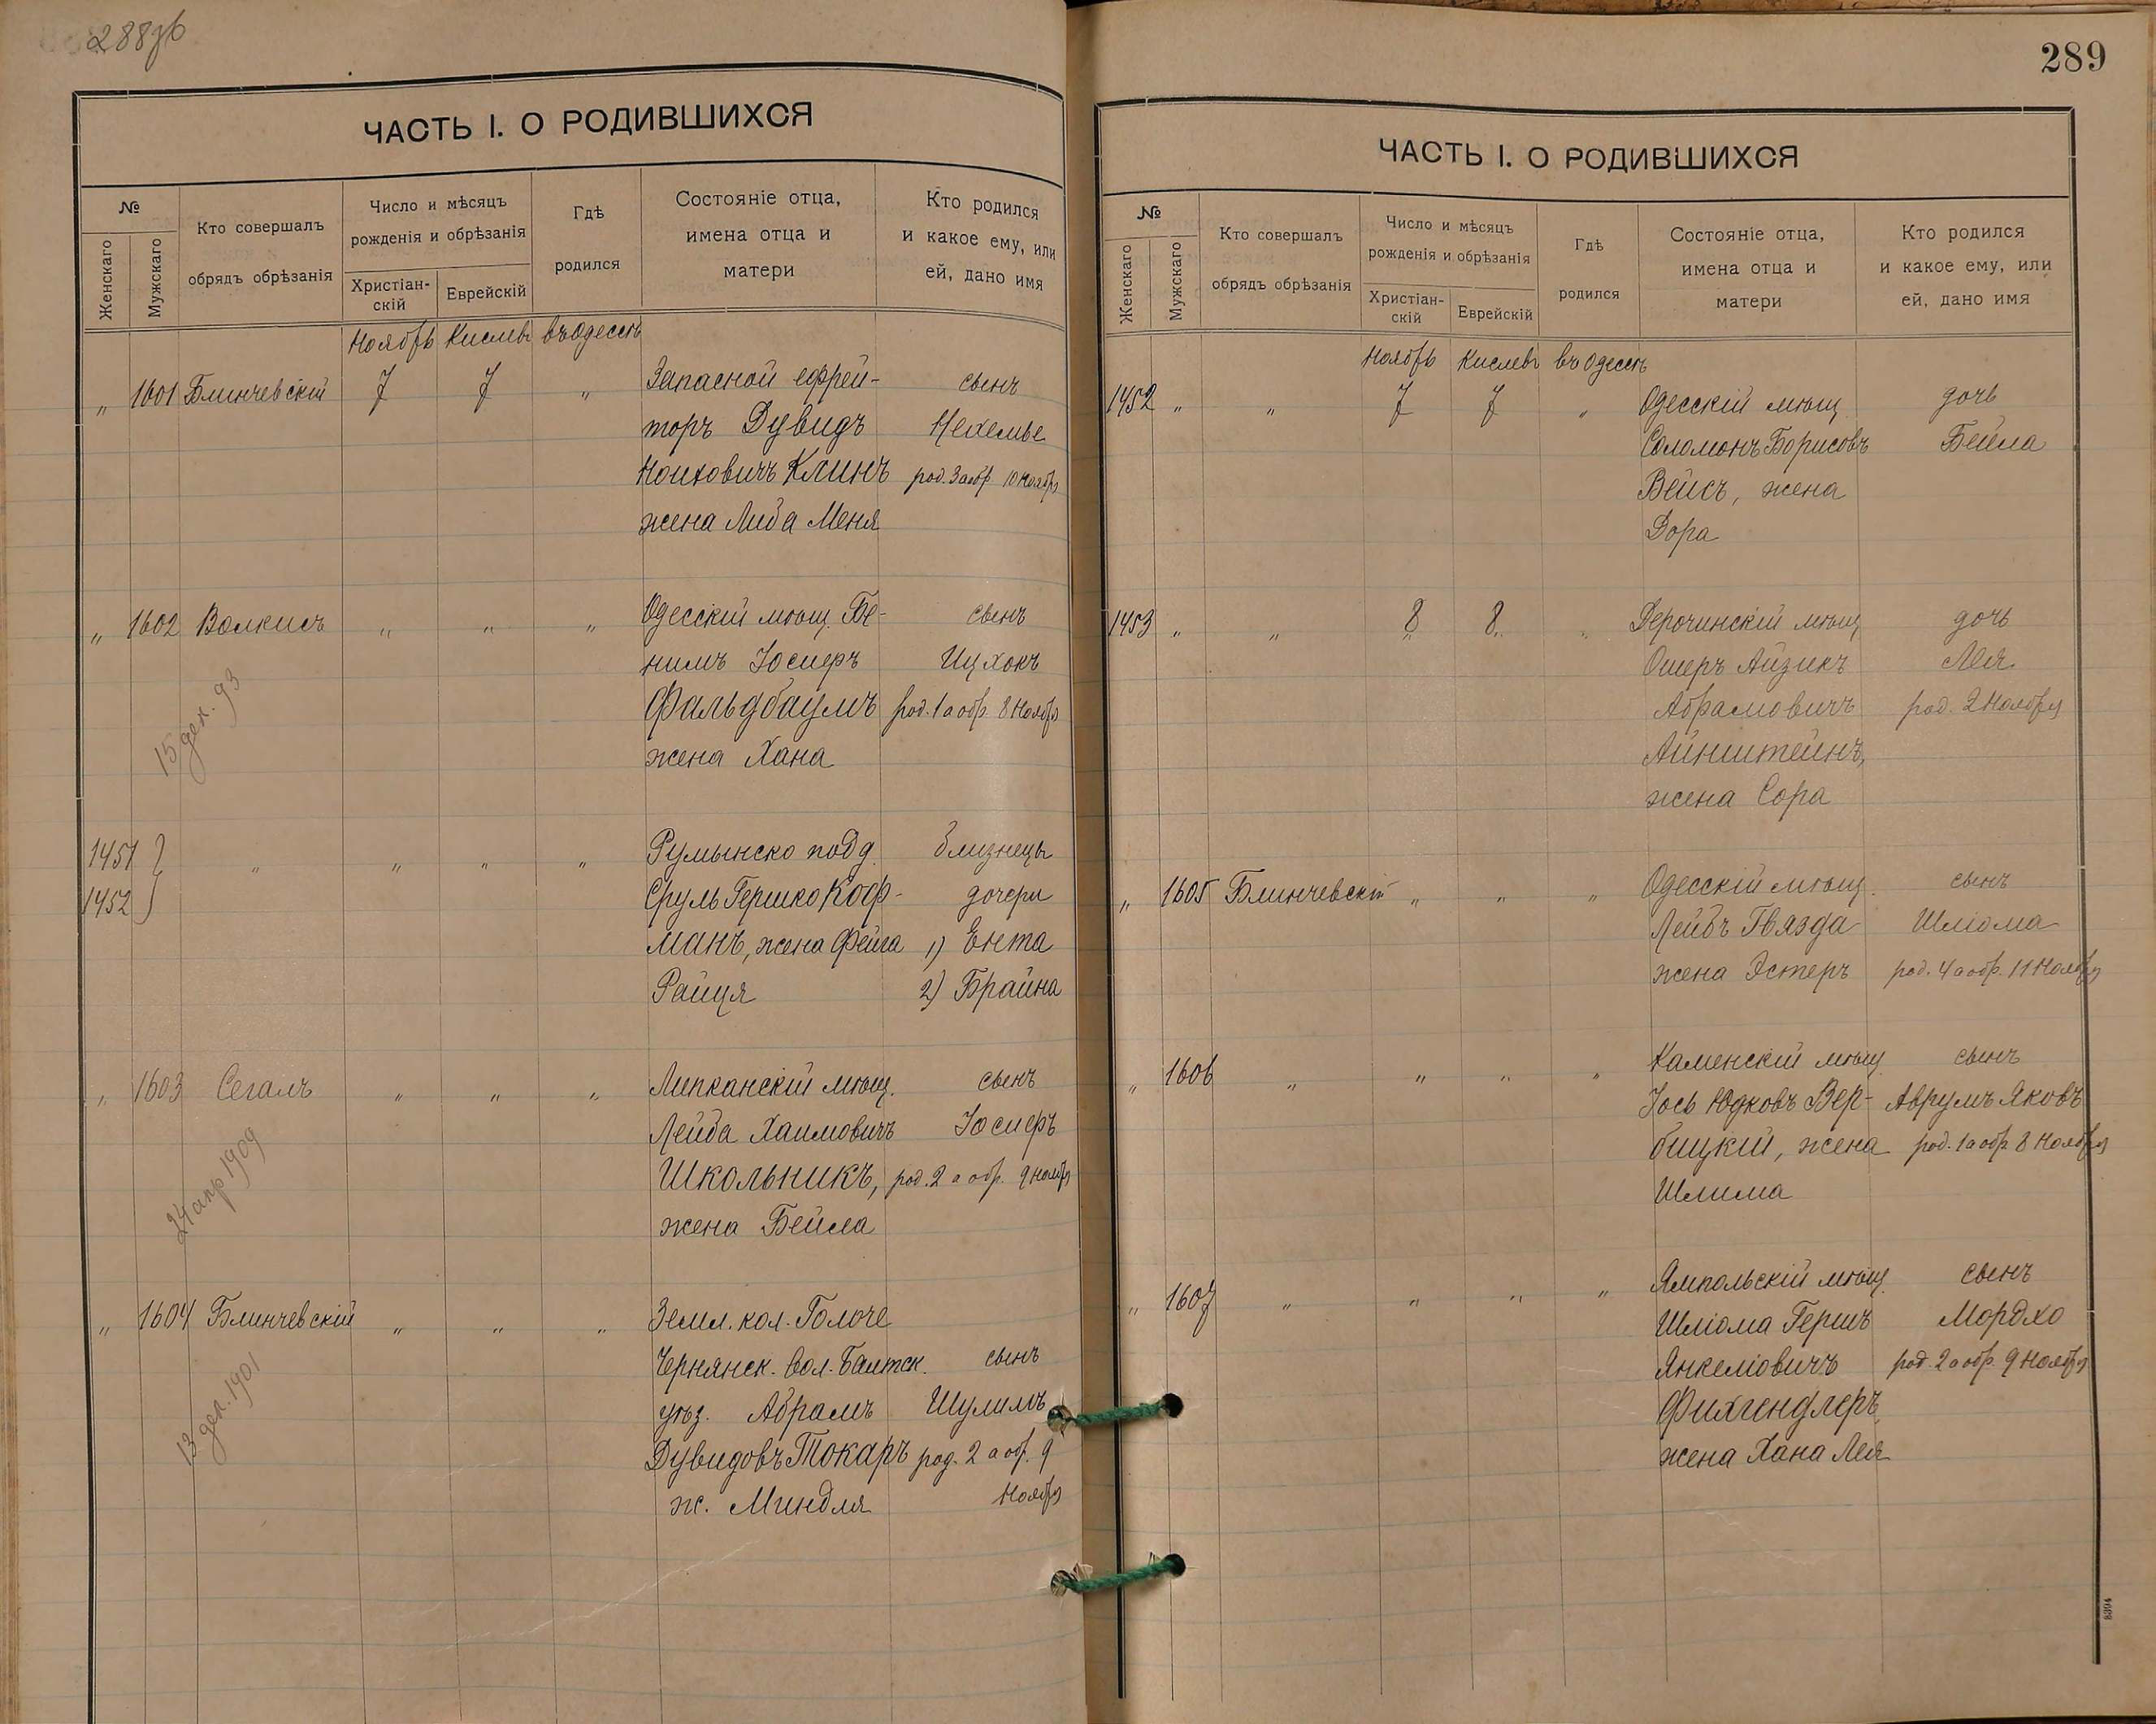 288 зб
ЧАСТЬ I. О РОДИВШИХСЯ
№
Женскаго
Мужскаго
Кто совершалъ
обрядъ обрѣзанія
Число и мѣсяцъ
рожденія и обрѣзанія
Христіан-
скій
Еврейскій
Гдѣ
родился
Состояніе отца,
имена отца и
матери
Кто родился
и какое ему, или
ей, дано имя
Ноябрь Кислевъ въ Одессѣ
„ 1601 Блинчевскій 7 7 „ Запасной ефрей- сынъ
торъ Дувидъ Нехемье
Ноиховичъ Клинъ род. 3 а обр 10 Ноября
жена Либа Меня
„ 1602 Волкисъ „ „ „ Одесскій мѣщ. Бе- сынъ
нимъ Іосиеръ Ицхокъ
Фальдбаумъ род. 1 а обр. 8 Ноября
жена Хана
15 дек. 93
1451 } „ „ „ „ Румынско подд. близнецы
1452 } Сруль Гершко Коф- дочери
манъ, жена Фейга 1) Ента
Райця 2) Брайна
„ 1603 Сегалъ „ „ „ Липканскій мѣщ. сынъ
Лейба Хаимовичъ Іосиеръ
Школьникъ, род. 2 а обр. 9 Ноября
жена Бейла
24 апр 1909
„ 1604 Блинчевскій „ „ „ Земл. кол. Голоче
Чернянск. вол. Балтск. сынъ
уѣз. Абрамъ Шулимъ
Дувидовъ Токаръ род. 2 а обр. 9
ж. Миндля Ноября
13 дек. 1901
289
ЧАСТЬ I. О РОДИВШИХСЯ
№
Женскаго
Мужскаго
Кто совершалъ
обрядъ обрѣзанія
Число и мѣсяцъ
рожденія и обрѣзанія
Христіан-
скій
Еврейскій
Гдѣ
родился
Состояніе отца,
имена отца и
матери
Кто родился
и какое ему, или
ей, дано имя
Ноябрь Кислевъ въ Одессѣ
1452 „ „ 7 7 „ Одесскій мѣщ. дочь
Соломонъ Борисовъ Бейла
Вейсъ, жена
Дора
1453 „ „ 8 8 „ Дерочинскій мѣщ дочь
Ошеръ Айзикъ Лея
Абрамовичъ род. 2 Ноября
Айнштейнъ,
жена Сора
„ 1605 Блинчевскій „ „ „ Одесскій мѣщ. сынъ
Лейбъ Гвязда Шліома
жена Эстеръ род. 4 а обр. 11 Ноября
„ 1606 „ „ „ „ Каменскій мѣщ. сынъ
Іось Юдковъ Вер- Аврумъ Яковъ
бицкій, жена род. 1 а обр 8 Ноября
Шлима
„ 1607 „ „ „ „ Ямпольскій мѣщ. сынъ
Шліома Гершъ Мордхо
Янкеліовичъ род. 2 а обр. 9 Ноября
Фихгендлеръ,
жена Хана Лея
8394